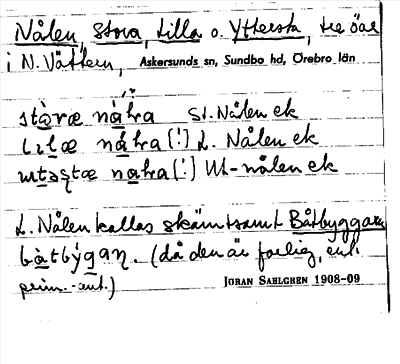 Nålen, Stora, Lilla o. Yttersta, tre öar
i N. Vättern, Askersunds sn, Sundbo hd, Örebro län
stòræ nåłna St. Nålen ek
lɩlæ nåłna (!) L. Nålen ek
nåłna (!) Ut-nålen ek
L. Nålen kallas skämtsamt Båtbyggaren
bàtbýgaɳ. (då den är farlig, enl.
prim.-ant.) JÖRAN SAHLGREN 1908-09